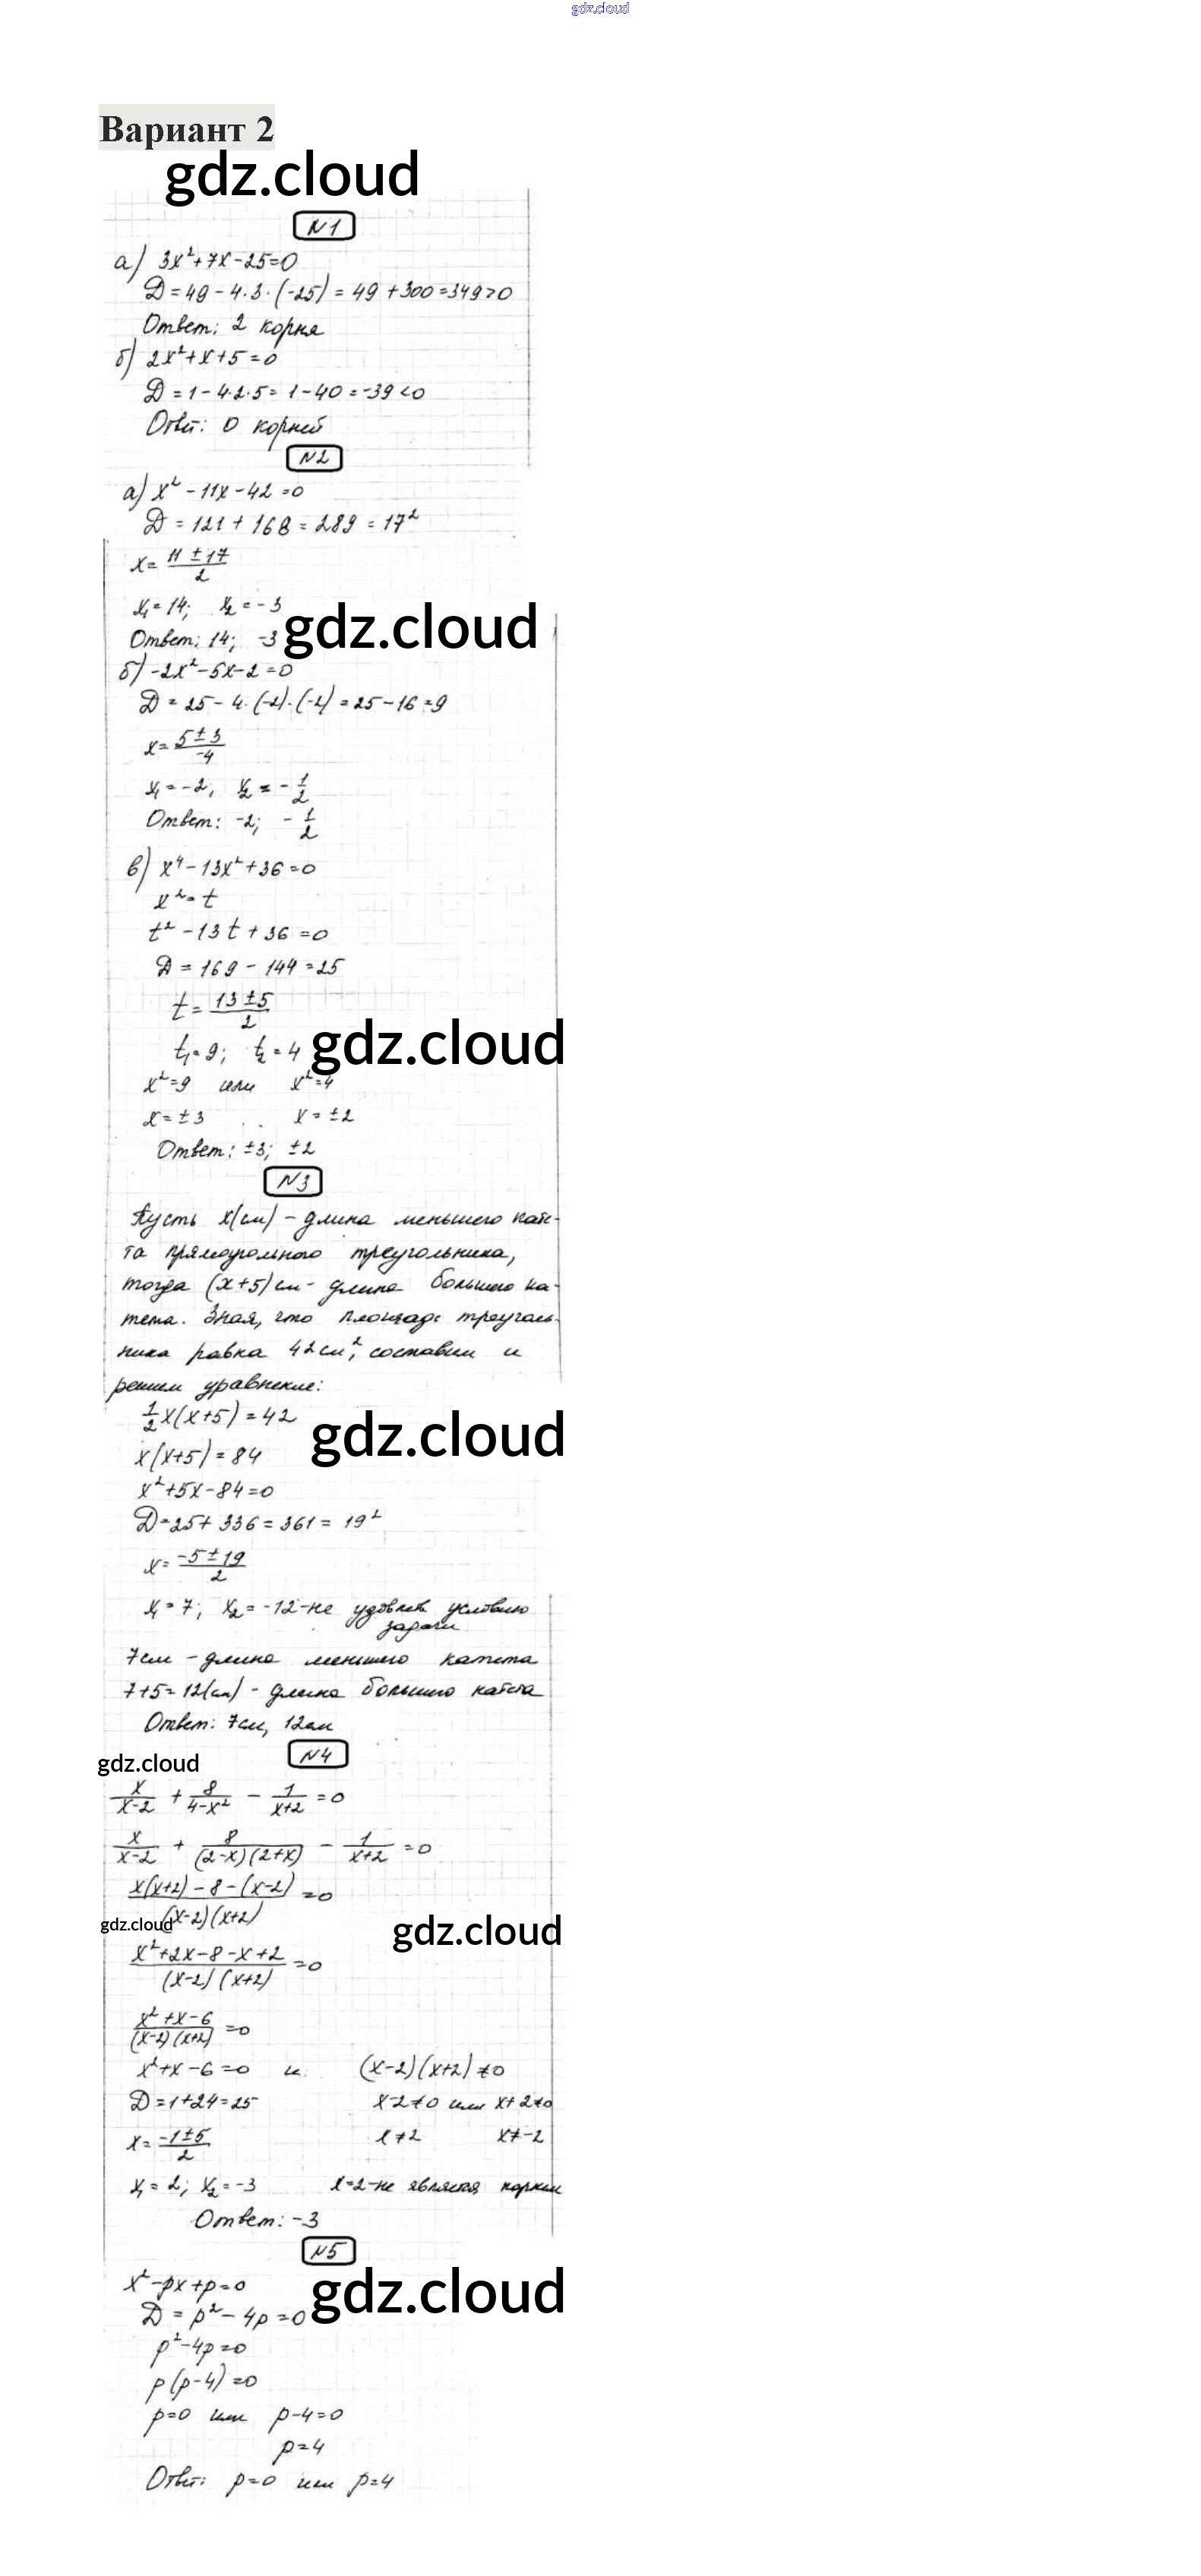 gdz.cloud
Вариант 2
gdz.cloud
N1
а) 3x²+7x-25=0
D=49-4·3·(-25)=49+300=349>0
Ответ: 2 корня
б) 2x²+x+5=0
D=1-4·2·5=1-40=-39<0
Ответ: 0 корней
N2
а) x²-11x-42=0
D=121+168=289=17²
x=(11±17)/2
x₁=14; x₂=-3
Ответ: 14; -3
gdz.cloud
б) -2x²-5x-2=0
D=25-4·(-2)·(-2)=25-16=9
x=(5±3)/-4
x₁=-2; x₂=-1/2
Ответ: -2; -1/2
в) x⁴-13x²+36=0
x²=t
t²-13t+36=0
D=169-144=25
t=(13±5)/2
t₁=9; t₂=4
gdz.cloud
x²=9 или x²=4
x=±3 x=±2
Ответ: ±3; ±2
N3
Пусть x(см) - длина меньшего кате-
та прямоугольного треугольника,
тогда (x+5)см - длина большего ка-
тета. Зная, что площадь треуголь-
ника равна 42см², составим и
решим уравнение:
1/2x(x+5)=42
gdz.cloud
x(x+5)=84
x²+5x-84=0
D=25+336=361=19²
x=(-5±19)/2
x₁=7; x₂=-12-не удовлетв. условию
задачи
7см - длина меньшего катета
7+5=12(см) - длина большего катета
Ответ: 7см, 12см
N4
gdz.cloud
x/(x-2) + 8/(4-x²) - 1/(x+2) =0
x/(x-2) + 8/((2-x)(2+x)) - 1/(x+2) =0
(x(x+2)-8-(x-2))/((x-2)(x+2)) =0
gdz.cloud
gdz.cloud
(x²+2x-8-x+2)/((x-2)(x+2)) =0
(x²+x-6)/((x-2)(x+2)) =0
x²+x-6=0 и (x-2)(x+2)≠0
D=1+24=25 x-2≠0 или x+2≠0
x=(-1±5)/2 x≠2 x≠-2
x₁=2; x₂=-3 x=2-не является корнем
Ответ: -3
N5
x²-px+p=0
gdz.cloud
D=p²-4p=0
p²-4p=0
p(p-4)=0
p=0 или p-4=0
p=4
Ответ: p=0 или p=4